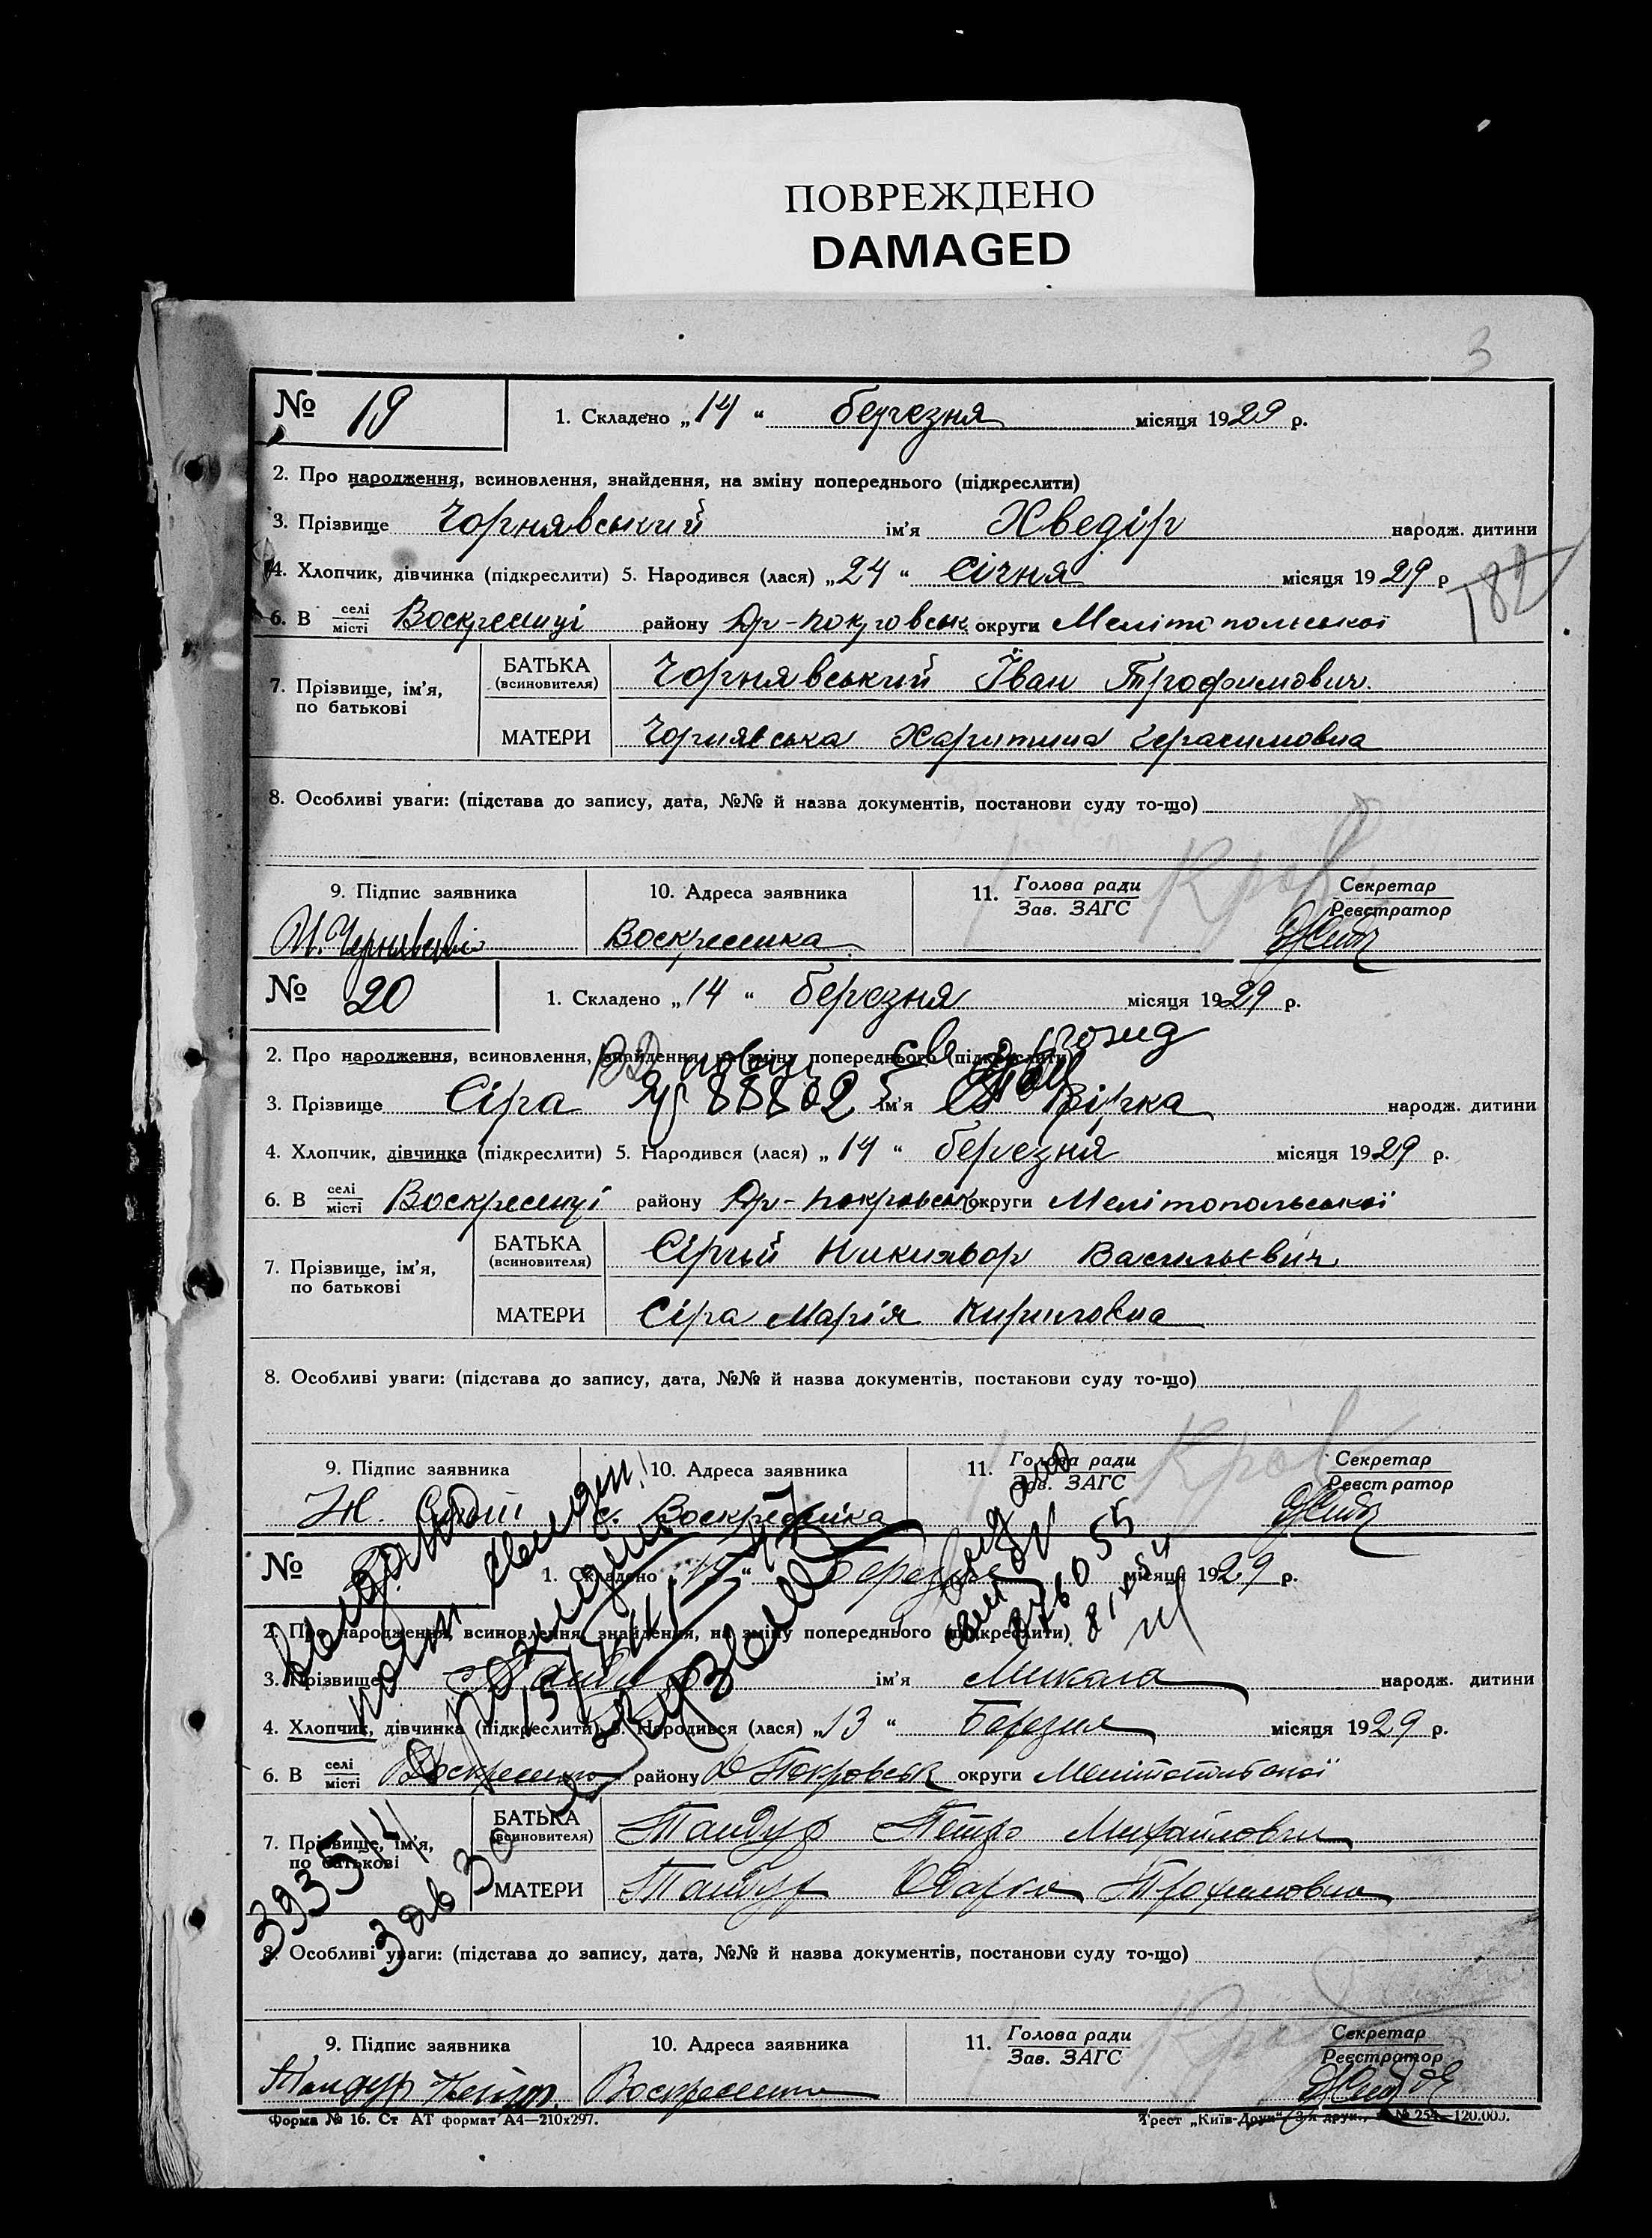 ПОВРЕЖДЕНО
DAMAGED
3
№ 19
1. Складено „14“ березня місяця 1929 р.
2. Про народження, всиновлення, знайдення, на зміну попереднього (підкреслити)
3. Прізвище Чорнявський ім'я Хведір народж. дитини
4. Хлопчик, дівчинка (підкреслити) 5. Народився (лася) „24“ Січня місяця 1929 р
182
6. В селі/місті Воскресенці району Др-покровськ округи Мелітопольської
7. Прізвище, ім'я, по батькові
БАТЬКА (всиновителя) Чорнявський Іван Трофимович
МАТЕРИ Чорнявська Харитина Герасимовна
8. Особливі уваги: (підстава до запису, дата, №№ й назва документів, постанови суду то-що)
9. Підпис заявника 10. Адреса заявника 11. Голова ради/Зав. ЗАГС Секретар/Реєстратор
Воскресенка
№ 20
1. Складено „14“ березня місяця 1929 р.
2. Про народження, всиновлення, знайдення, на зміну попереднього (підкреслити)
3. Прізвище Сіра ім'я Вірка народж. дитини
4. Хлопчик, дівчинка (підкреслити) 5. Народився (лася) „14“ березня місяця 1929 р.
6. В селі/місті Воскресенці району Др-покровськ округи Мелітопольської
7. Прізвище, ім'я, по батькові
БАТЬКА (всиновителя) Сірий Никихвор Васильєвич
МАТЕРИ Сіра Марія Кириловна
8. Особливі уваги: (підстава до запису, дата, №№ й назва документів, постанови суду то-що)
9. Підпис заявника 10. Адреса заявника 11. Голова ради/Зав. ЗАГС Секретар/Реєстратор
с. Воскресенка
№
1. Складено березня місяця 1929 р.
2. Про народження, всиновлення, знайдення, на зміну попереднього (підкреслити)
3. Прізвище ім'я Микола народж. дитини
4. Хлопчик, дівчинка (підкреслити) 5. Народився (лася) „13“ Березня місяця 1929 р.
6. В селі/місті Воскресенка району Д Покровськ округи
7. Прізвище, ім'я, по батькові
БАТЬКА (всиновителя) Тандур Петро Михайлович
МАТЕРИ Тандур Одарка Трохимовна
8. Особливі уваги: (підстава до запису, дата, №№ й назва документів, постанови суду то-що)
9. Підпис заявника 10. Адреса заявника 11. Голова ради/Зав. ЗАГС Секретар/Реєстратор
Тандур Петро Воскресенка
Форма № 16. Ст АТ формат А4—210х297.
Трест „Київ-Друк“ № 254—120.000.